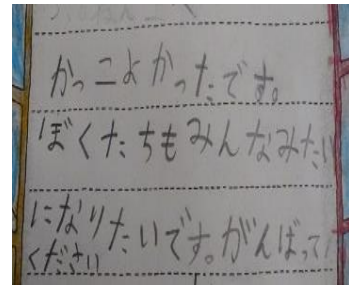 かっこよかったです。
ぼくたちもみんなみたい
になりたいです。がんばって
ください